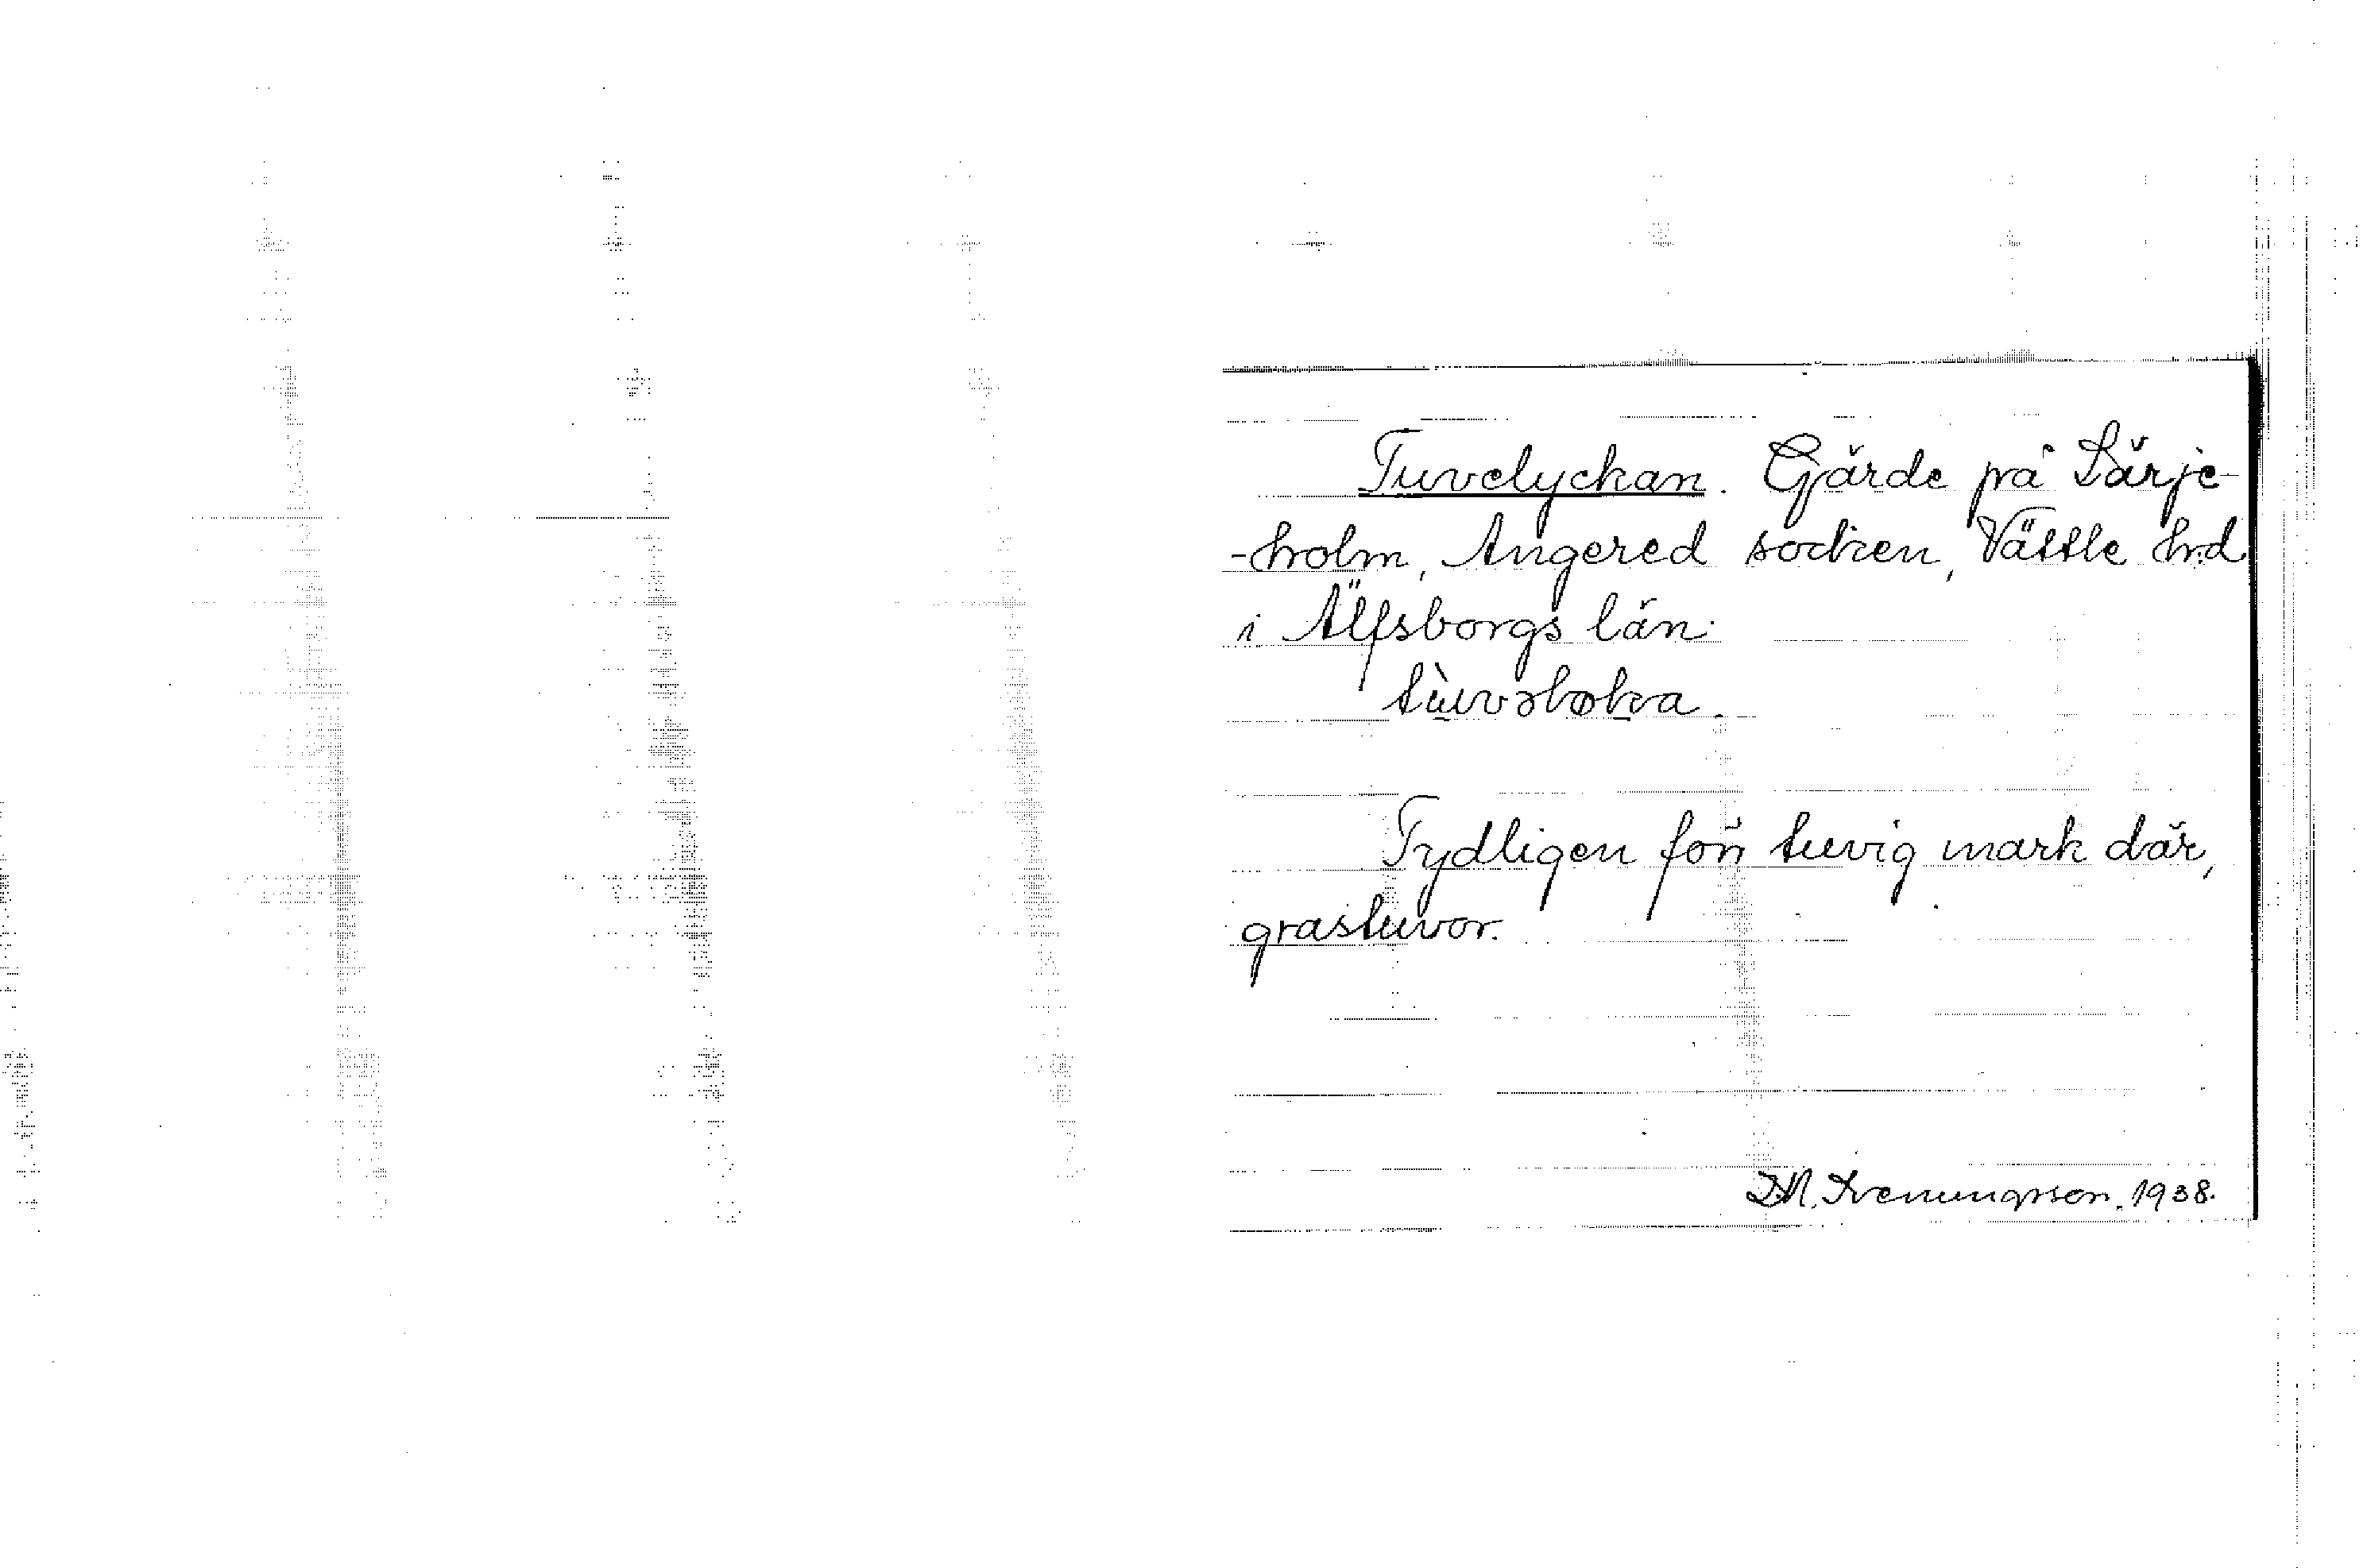 Tuvelyckan. Gärde på Lärje-
-holm, Angered socken, Vättle hrd
i Älfsborgs län.
tùvəløka.
Tydligen för tuvig mark där,
grastuvor.
1938.